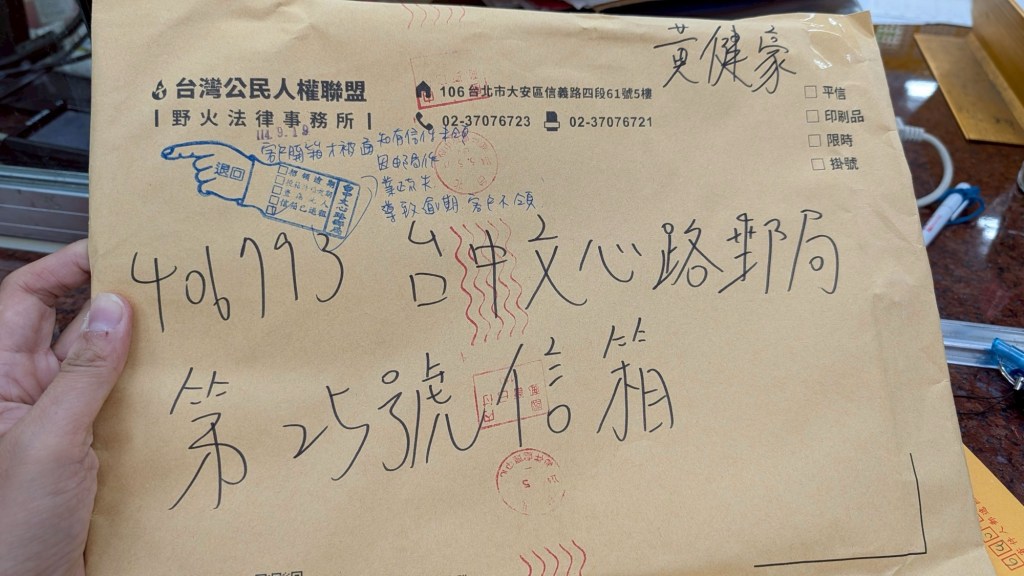 黃健豪
台灣公民人權聯盟
野火法律事務所
106台北市大安區信義路四段61號5樓
02-37076723 02-37076721
□平信
□印刷品
□限時
□掛號
退回
114.9.19
客戶開箱才被通知有信件未領
因郵局作
業疏失
導致逾期 客戶不領
406793 台中文心路郵局
第25號信箱